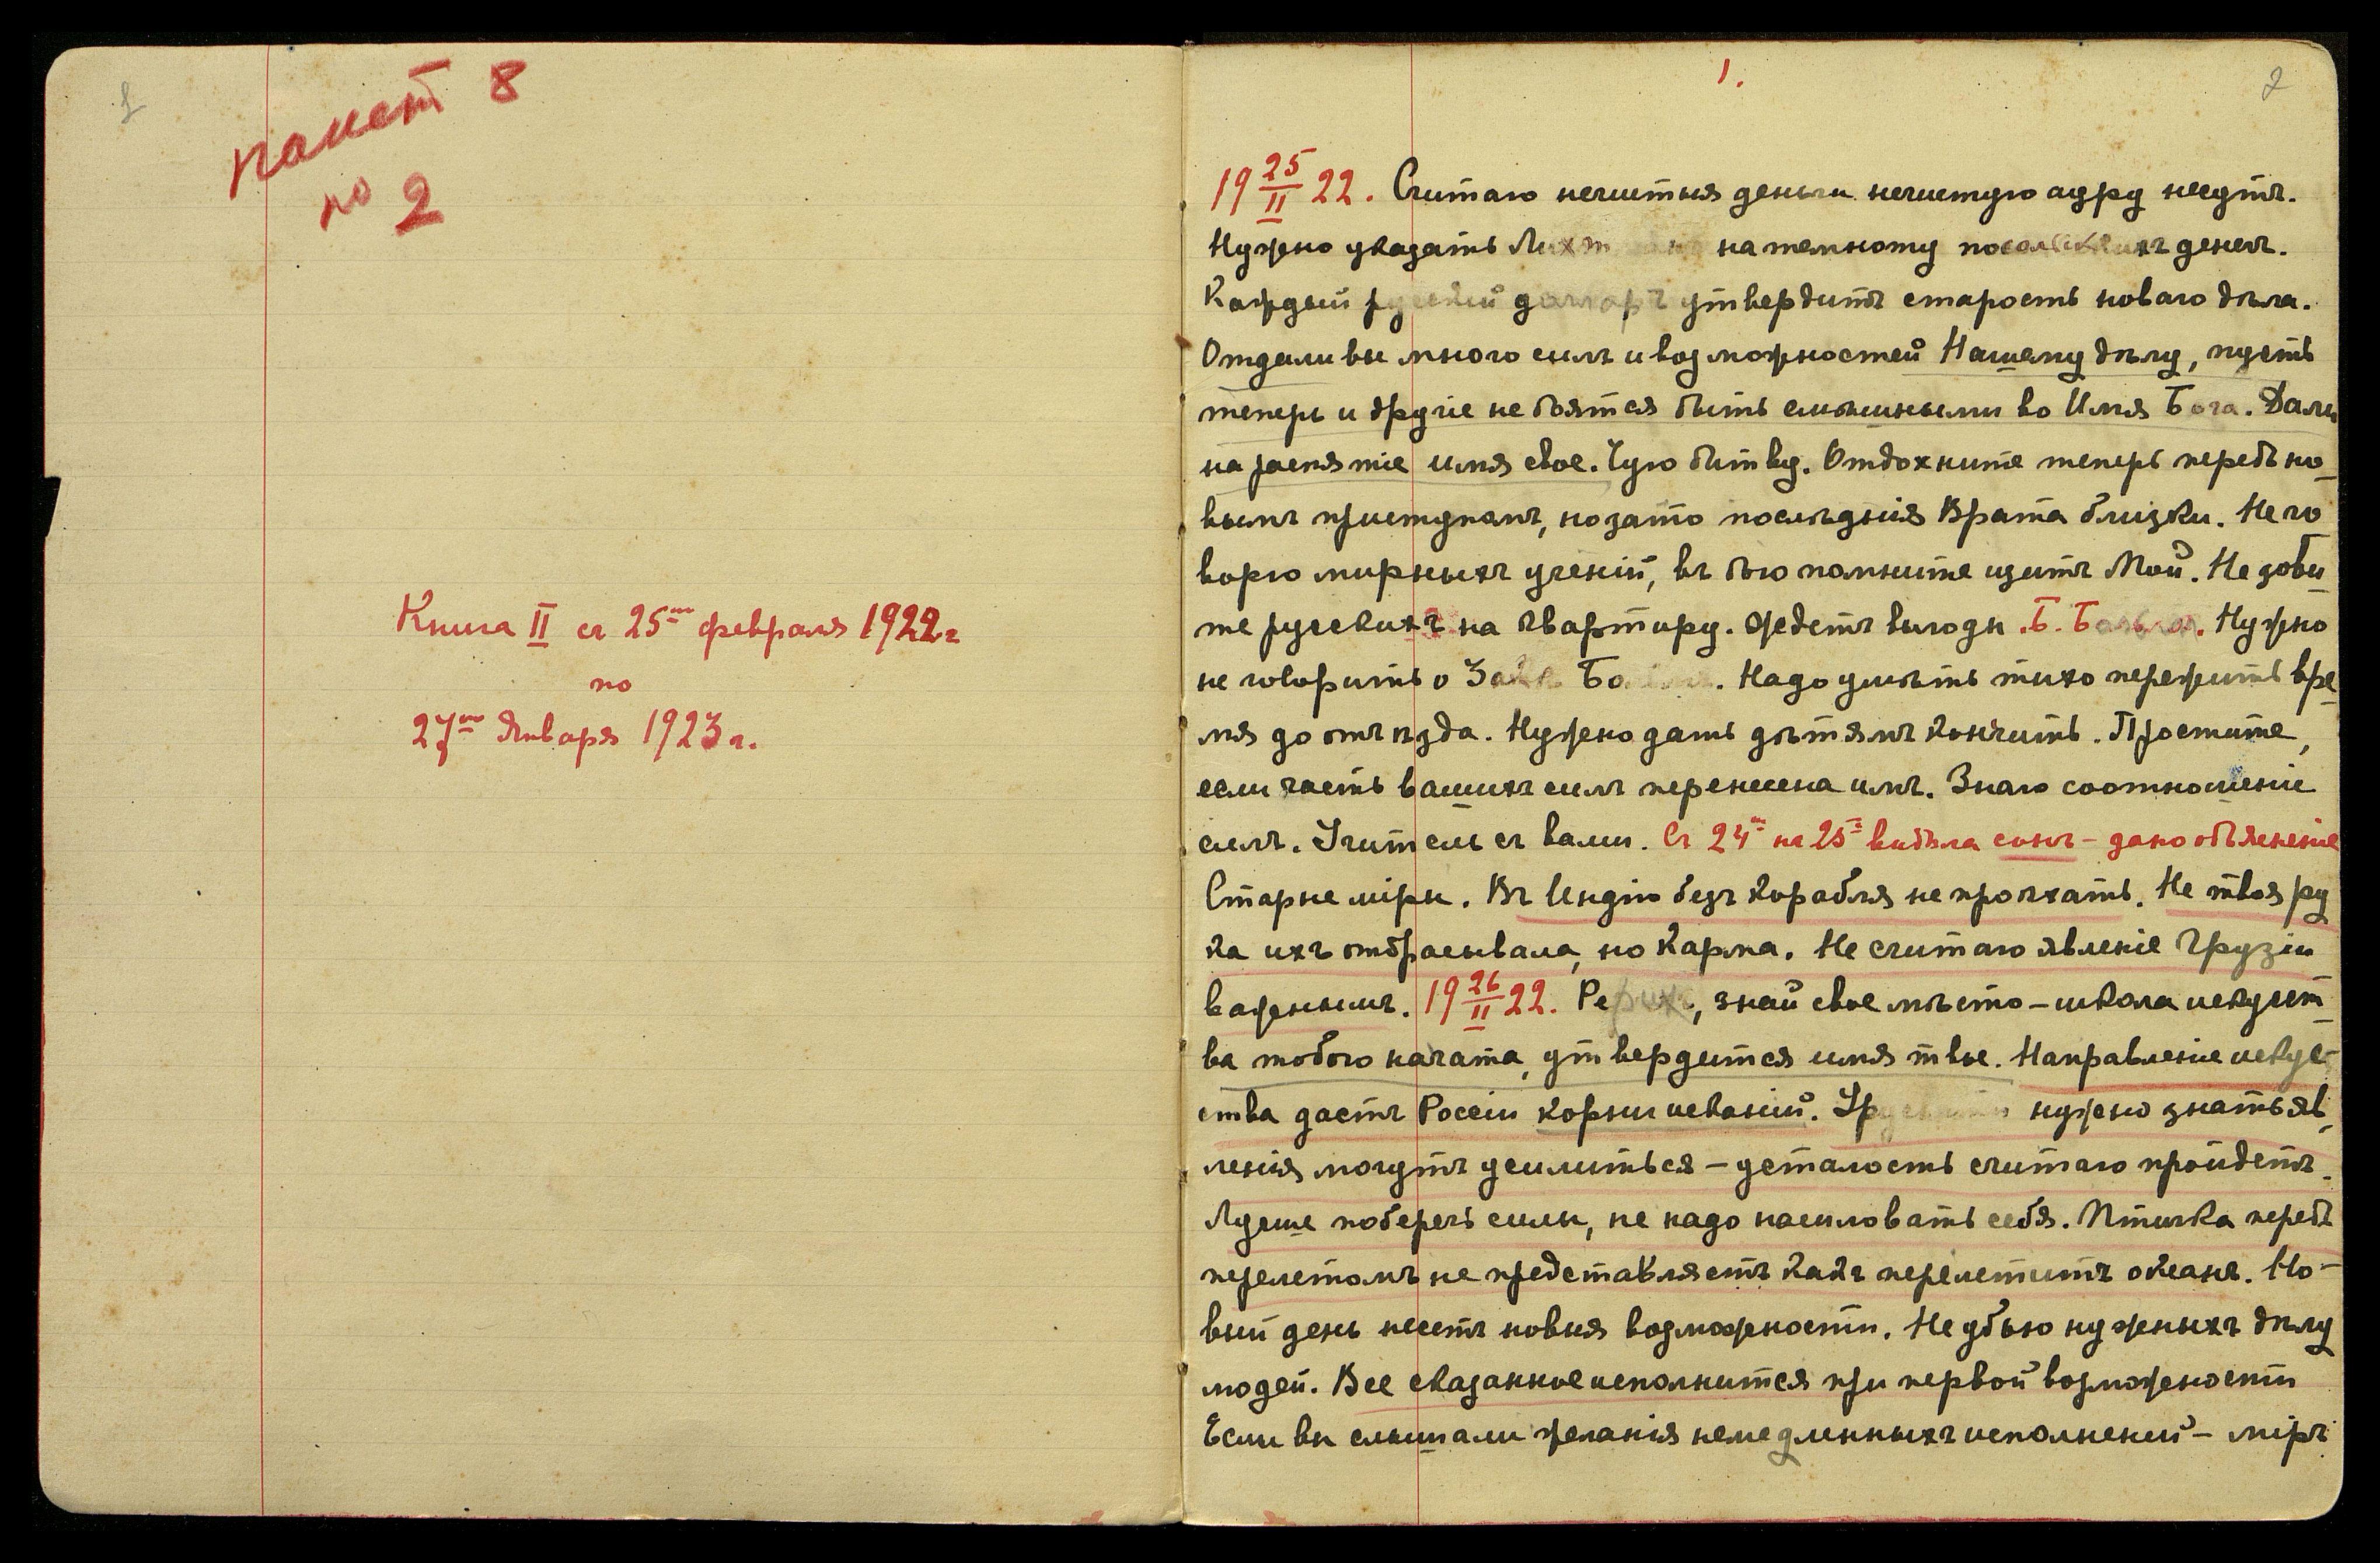 1
пакет 8
no 2
Книга II съ 25го февраля 1922г
по
27го Января 1923г.
1.
2
19 25/II 22. Считаю нечистыя деньги нечистую ауру несутъ.
Нужно указать на темноту денегъ.
Каждый русскій долларъ утвердитъ старость новаго дѣла.
Отдали вы много силъ и возможностей Нашему дѣлу, пусть
теперь и другіе не боятся быть смѣшными во Имя Бога. Дали
на распятіе имя свое. Чую битву. Отдохните теперь передъ но-
вымъ приступомъ, но зато послѣднія Врата близки. Не го
ворю мирныхъ ученій, въ бою помните щитъ Мой. Не зови
те русскихъ на квартиру. Ждетъ выгоды .Б. Нужно
не говорить о Надо умѣть тихо пережить вре-
мя до отъѣзда. Нужно дать дѣтямъ кончить. Простите,
если часть вашихъ силъ перенесена имъ. Знаю соотношеніе
силъ. Учитель съ вами. Съ 24го на 25е видѣла сонъ – дано объясненіе
Старые міры. Въ Индію безъ корабля не проѣхать. Не твоя ру
ка ихъ отбрасывала, но Карма. Не считаю явленіе Грузіи
важнымъ. 19 26/II 22. Рерихъ, знай свое мѣсто – школа искусст-
ва тобою начата, утвердится имя твое. Направленіе искус-
ства дастъ Россіи корни исканій. нужно знать яв-
ленія могутъ усилиться – усталость считаю пройдетъ.
Лучше поберечь силы, не надо насиловать себя. Птичка передъ
перелетомъ не представляетъ какъ перелетитъ океанъ. Но-
вый день несетъ новыя возможности. Не убью нужныхъ дѣлу
людей. Все сказанное исполнится при первой возможности
Если вы слышали желанія немедленныхъ исполненій – міръ